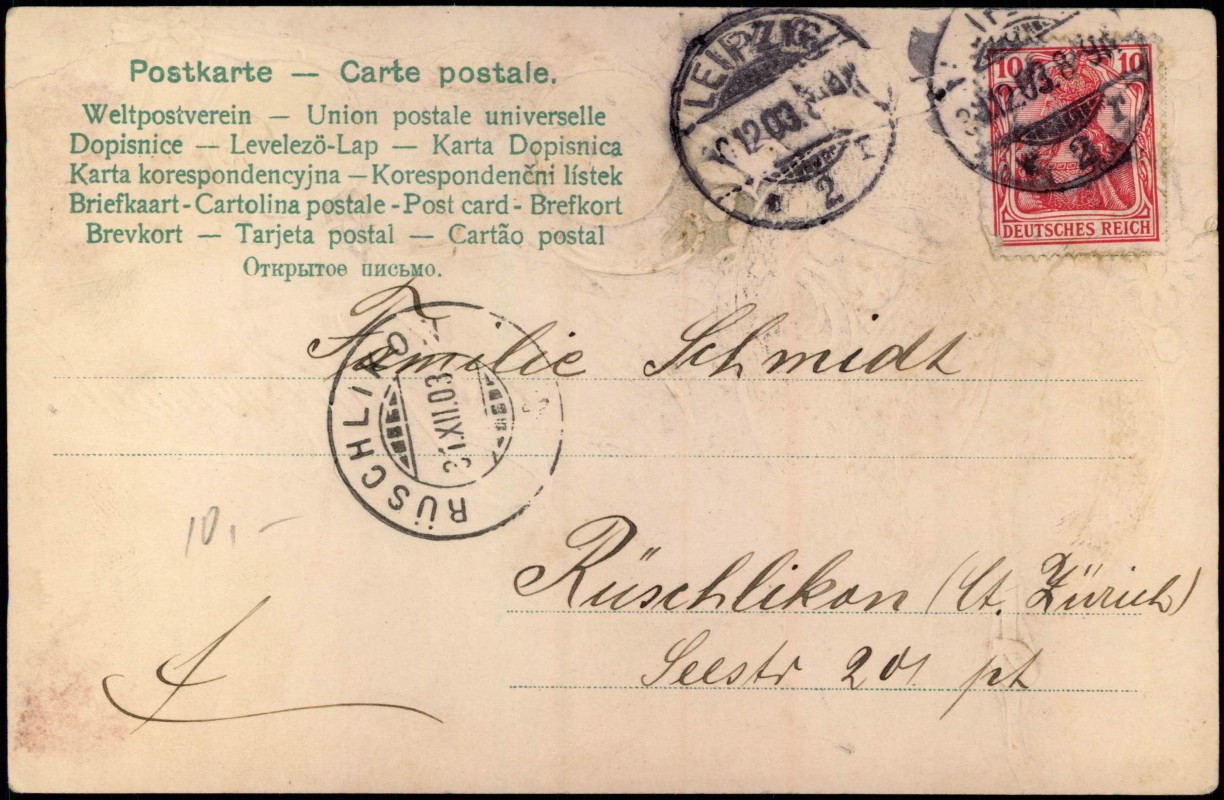 Postkarte — Carte postale.
Weltpostverein — Union postale universelle
Dopisnice — Levelezö-Lap — Karta Dopisnica
Karta korespondencyjna — Korespondenční lístek
Briefkaart - Cartolina postale - Post card - Brefkort
Brevkort — Tarjeta postal — Cartão postal
Открытое письмо.
LEIPZIG
12.03.
2
12.03.8-9N.
2
10 10
DEUTSCHES REICH
Familie Schmidt
RÜSCHLIKON
31.XII.03
10,-
Rüschlikon (Ct. Zürich)
Seestr 201 pt